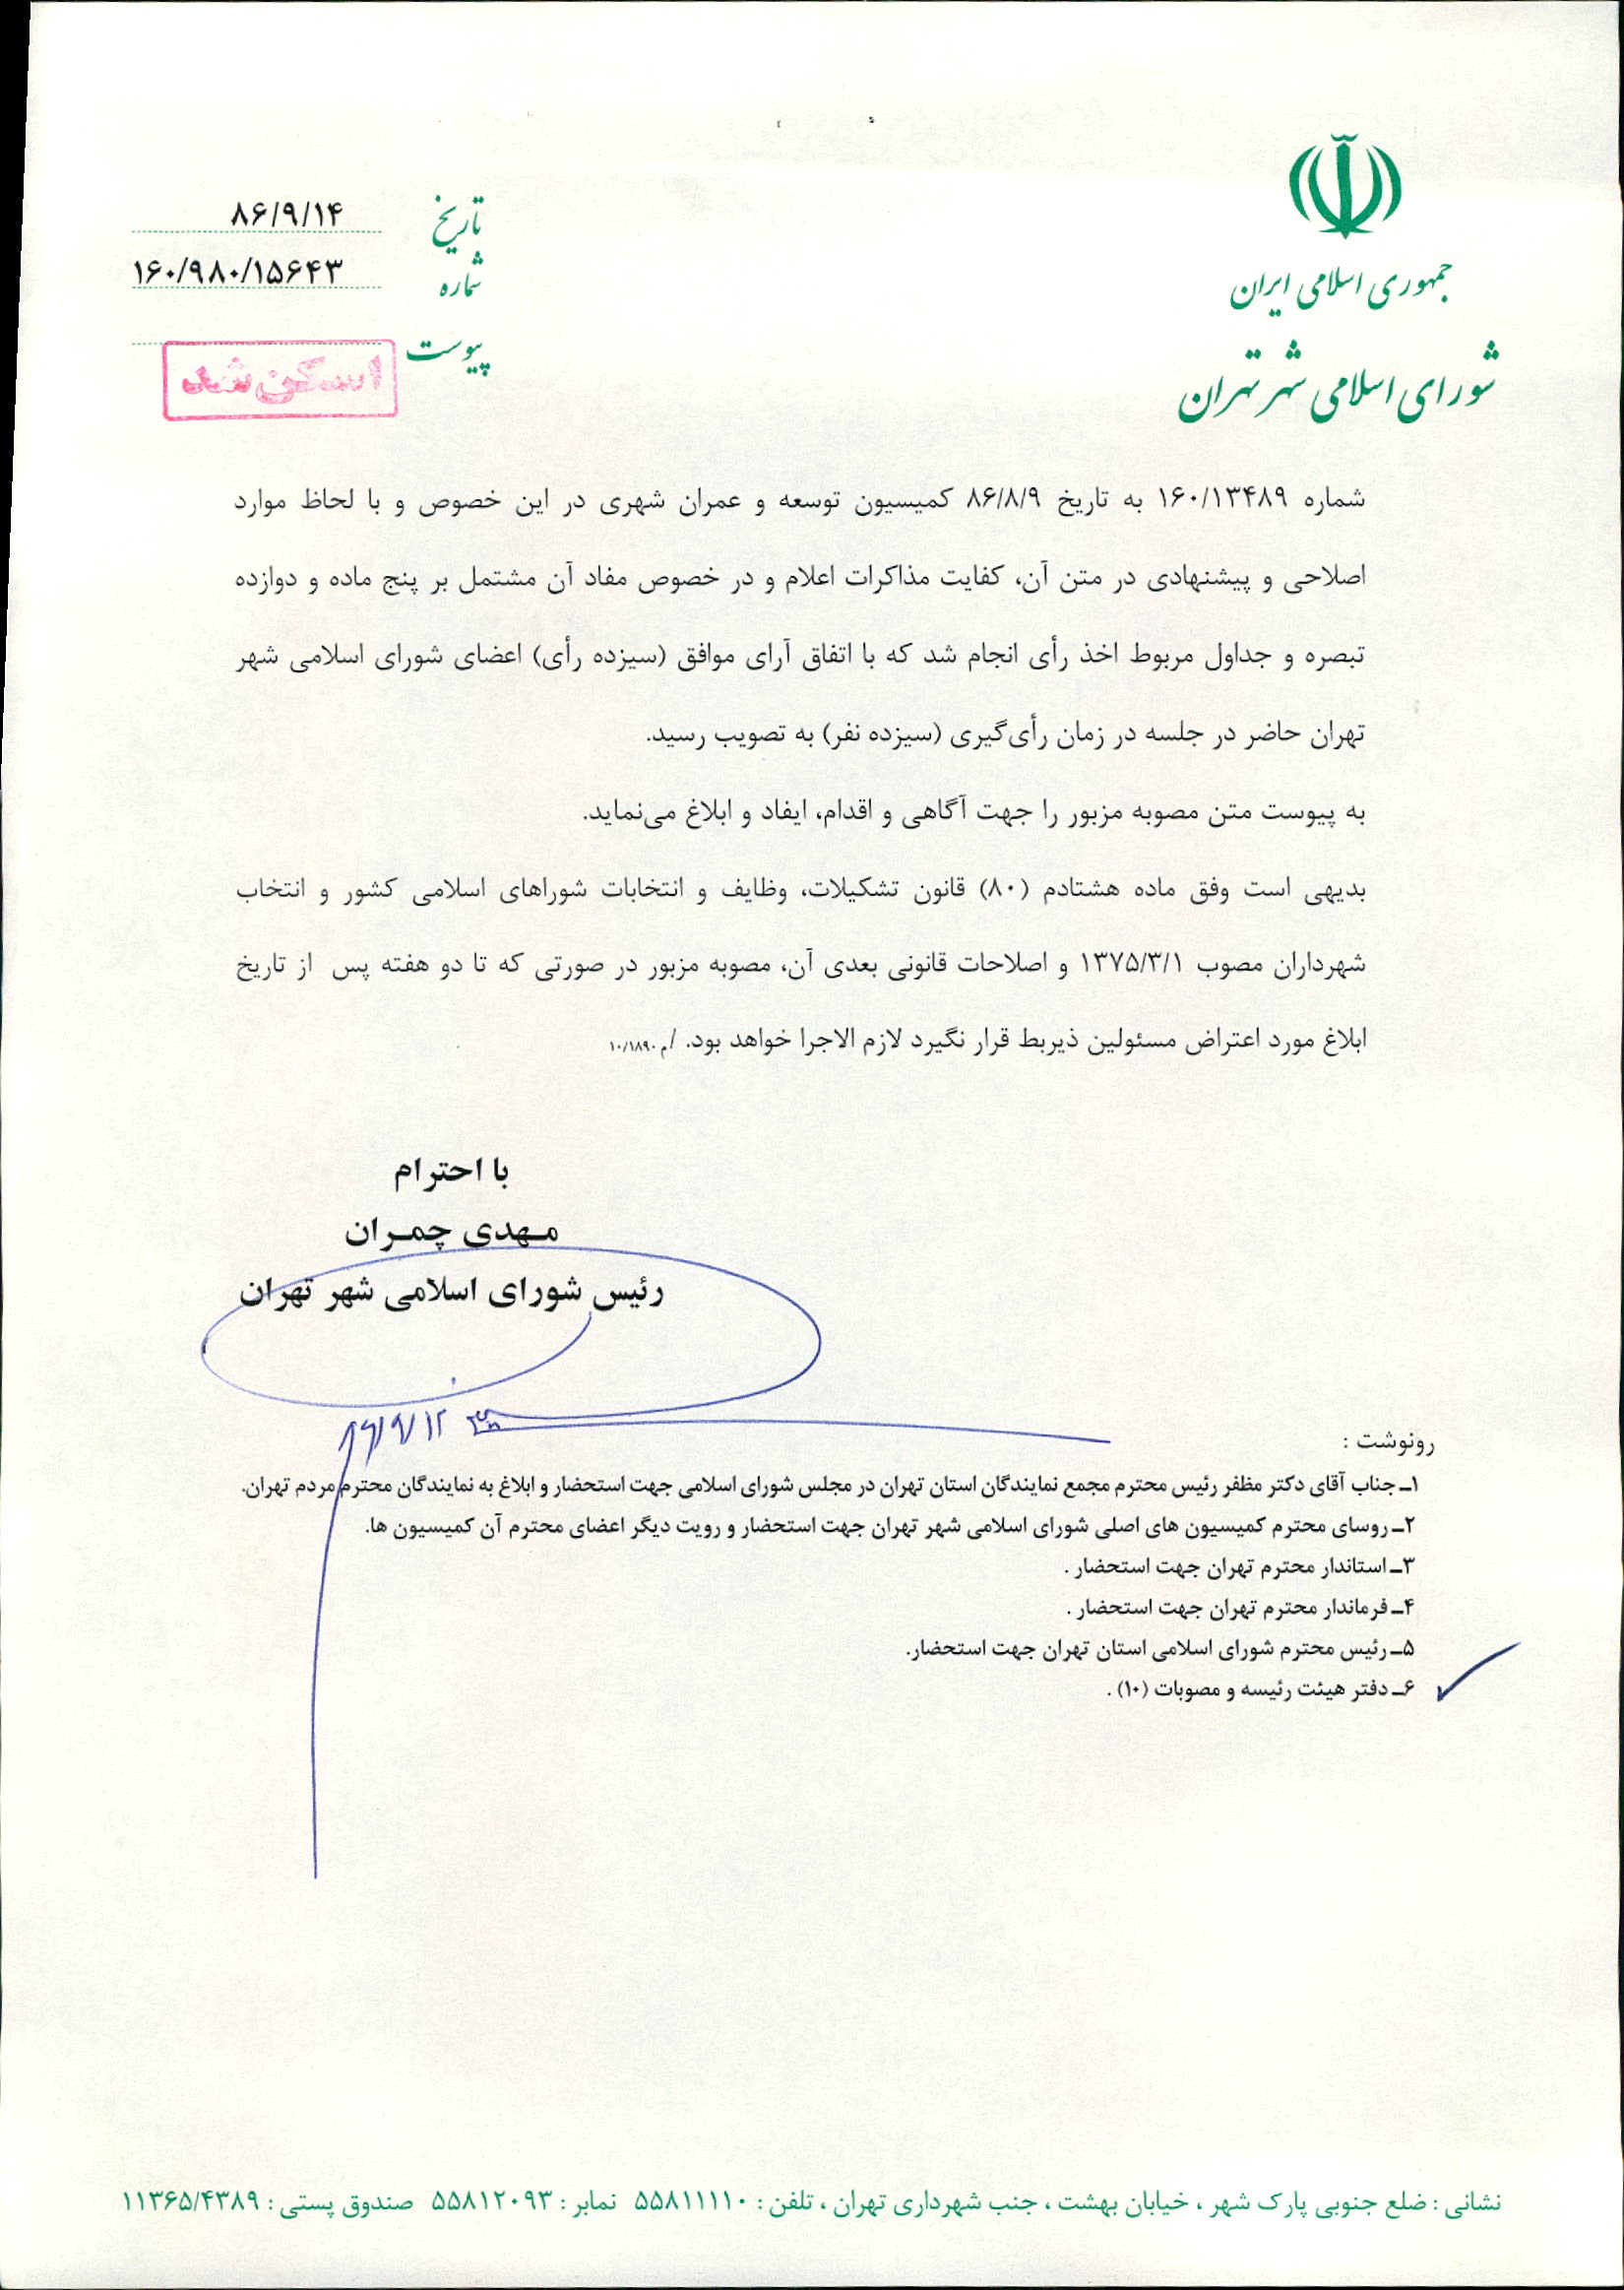 جمهوری اسلامی ایران
شورای اسلامی شهر تهران
تاریخ ۸۶/۹/۱۴
شماره ۱۶۰/۹۸۰/۱۵۶۴۳
پیوست
اسکن شد
شماره ۱۶۰/۱۳۴۸۹ به تاریخ ۸۶/۸/۹ کمیسیون توسعه و عمران شهری در این خصوص و با لحاظ موارد
اصلاحی و پیشنهادی در متن آن، کفایت مذاکرات اعلام و در خصوص مفاد آن مشتمل بر پنج ماده و دوازده
تبصره و جداول مربوط اخذ رأی انجام شد که با اتفاق آرای موافق (سیزده رأی) اعضای شورای اسلامی شهر
تهران حاضر در جلسه در زمان رأی‌گیری (سیزده نفر) به تصویب رسید.
به پیوست متن مصوبه مزبور را جهت آگاهی و اقدام، ایفاد و ابلاغ می‌نماید.
بدیهی است وفق ماده هشتادم (۸۰) قانون تشکیلات، وظایف و انتخابات شوراهای اسلامی کشور و انتخاب
شهرداران مصوب ۱۳۷۵/۳/۱ و اصلاحات قانونی بعدی آن، مصوبه مزبور در صورتی که تا دو هفته پس از تاریخ
ابلاغ مورد اعتراض مسئولین ذیربط قرار نگیرد لازم الاجرا خواهد بود. /م ۱۰/۱۸۹۰
با احترام
مـهدی چمـران
رئیس شورای اسلامی شهر تهران
۸۶/۹/۱۲
رونوشت :
۱ـ جناب آقای دکتر مظفر رئیس محترم مجمع نمایندگان استان تهران در مجلس شورای اسلامی جهت استحضار و ابلاغ به نمایندگان محترم مردم تهران.
۲ـ روسای محترم کمیسیون های اصلی شورای اسلامی شهر تهران جهت استحضار و رویت دیگر اعضای محترم آن کمیسیون ها.
۳ـ استاندار محترم تهران جهت استحضار .
۴ـ فرماندار محترم تهران جهت استحضار .
۵ـ رئیس محترم شورای اسلامی استان تهران جهت استحضار.
۶ـ دفتر هیئت رئیسه و مصوبات (۱۰) .
نشانی : ضلع جنوبی پارک شهر ، خیابان بهشت ، جنب شهرداری تهران ، تلفن : ۵۵۸۱۱۱۱۰ نمابر : ۵۵۸۱۲۰۹۳ صندوق پستی : ۱۱۳۶۵/۴۳۸۹